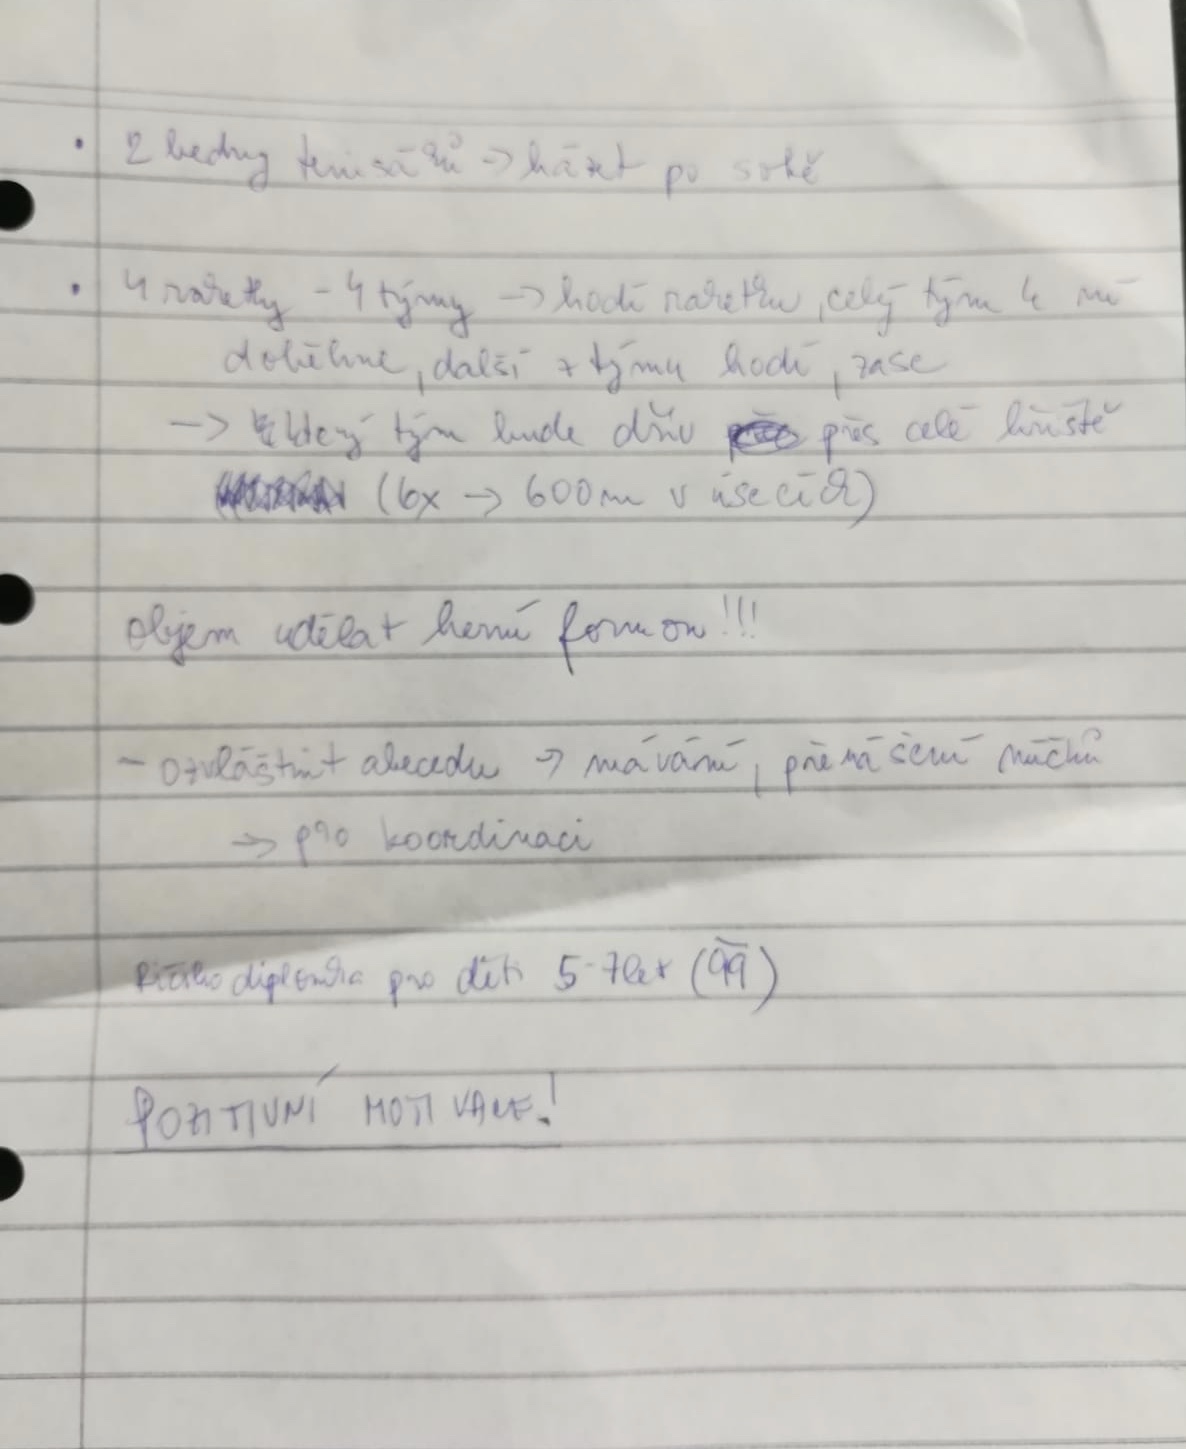 • 2 bedny tenisáků → házet po sobě
• 4 raketky - 4 týmy → hodí raketku, celý tým k ní
doběhne, další z týmu hodí, zase
→ který tým bude dřív přes celé hřiště
(6x → 600m v úsecích)
Objem udělat herní formou!!!
- ozvláštnit abecedu → mávání, přenášení míčků
→ pro koordinaci
diplomka pro děti 5-7let
POZITIVNÍ MOTIVACE!